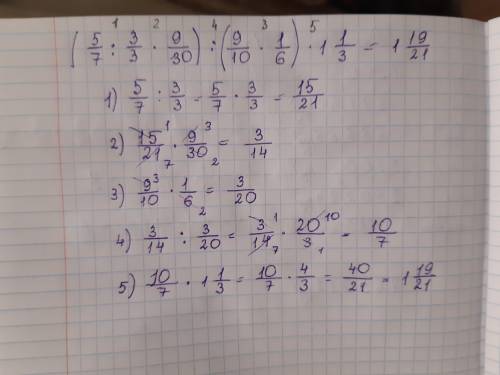 1 2 4 3 5
(5/7 : 3/3 · 9/30) : (9/10 · 1/6) · 1 1/3 = 1 19/21
1) 5/7 : 3/3 = 5/7 · 3/3 = 15/21
2) 15 1/21 7 · 9 3/30 2 = 3/14
3) 9 3/10 · 1/6 2 = 3/20
4) 3/14 : 3/20 = 3 1/14 7 · 20 10/3 1 = 10/7
5) 10/7 · 1 1/3 = 10/7 · 4/3 = 40/21 = 1 19/21